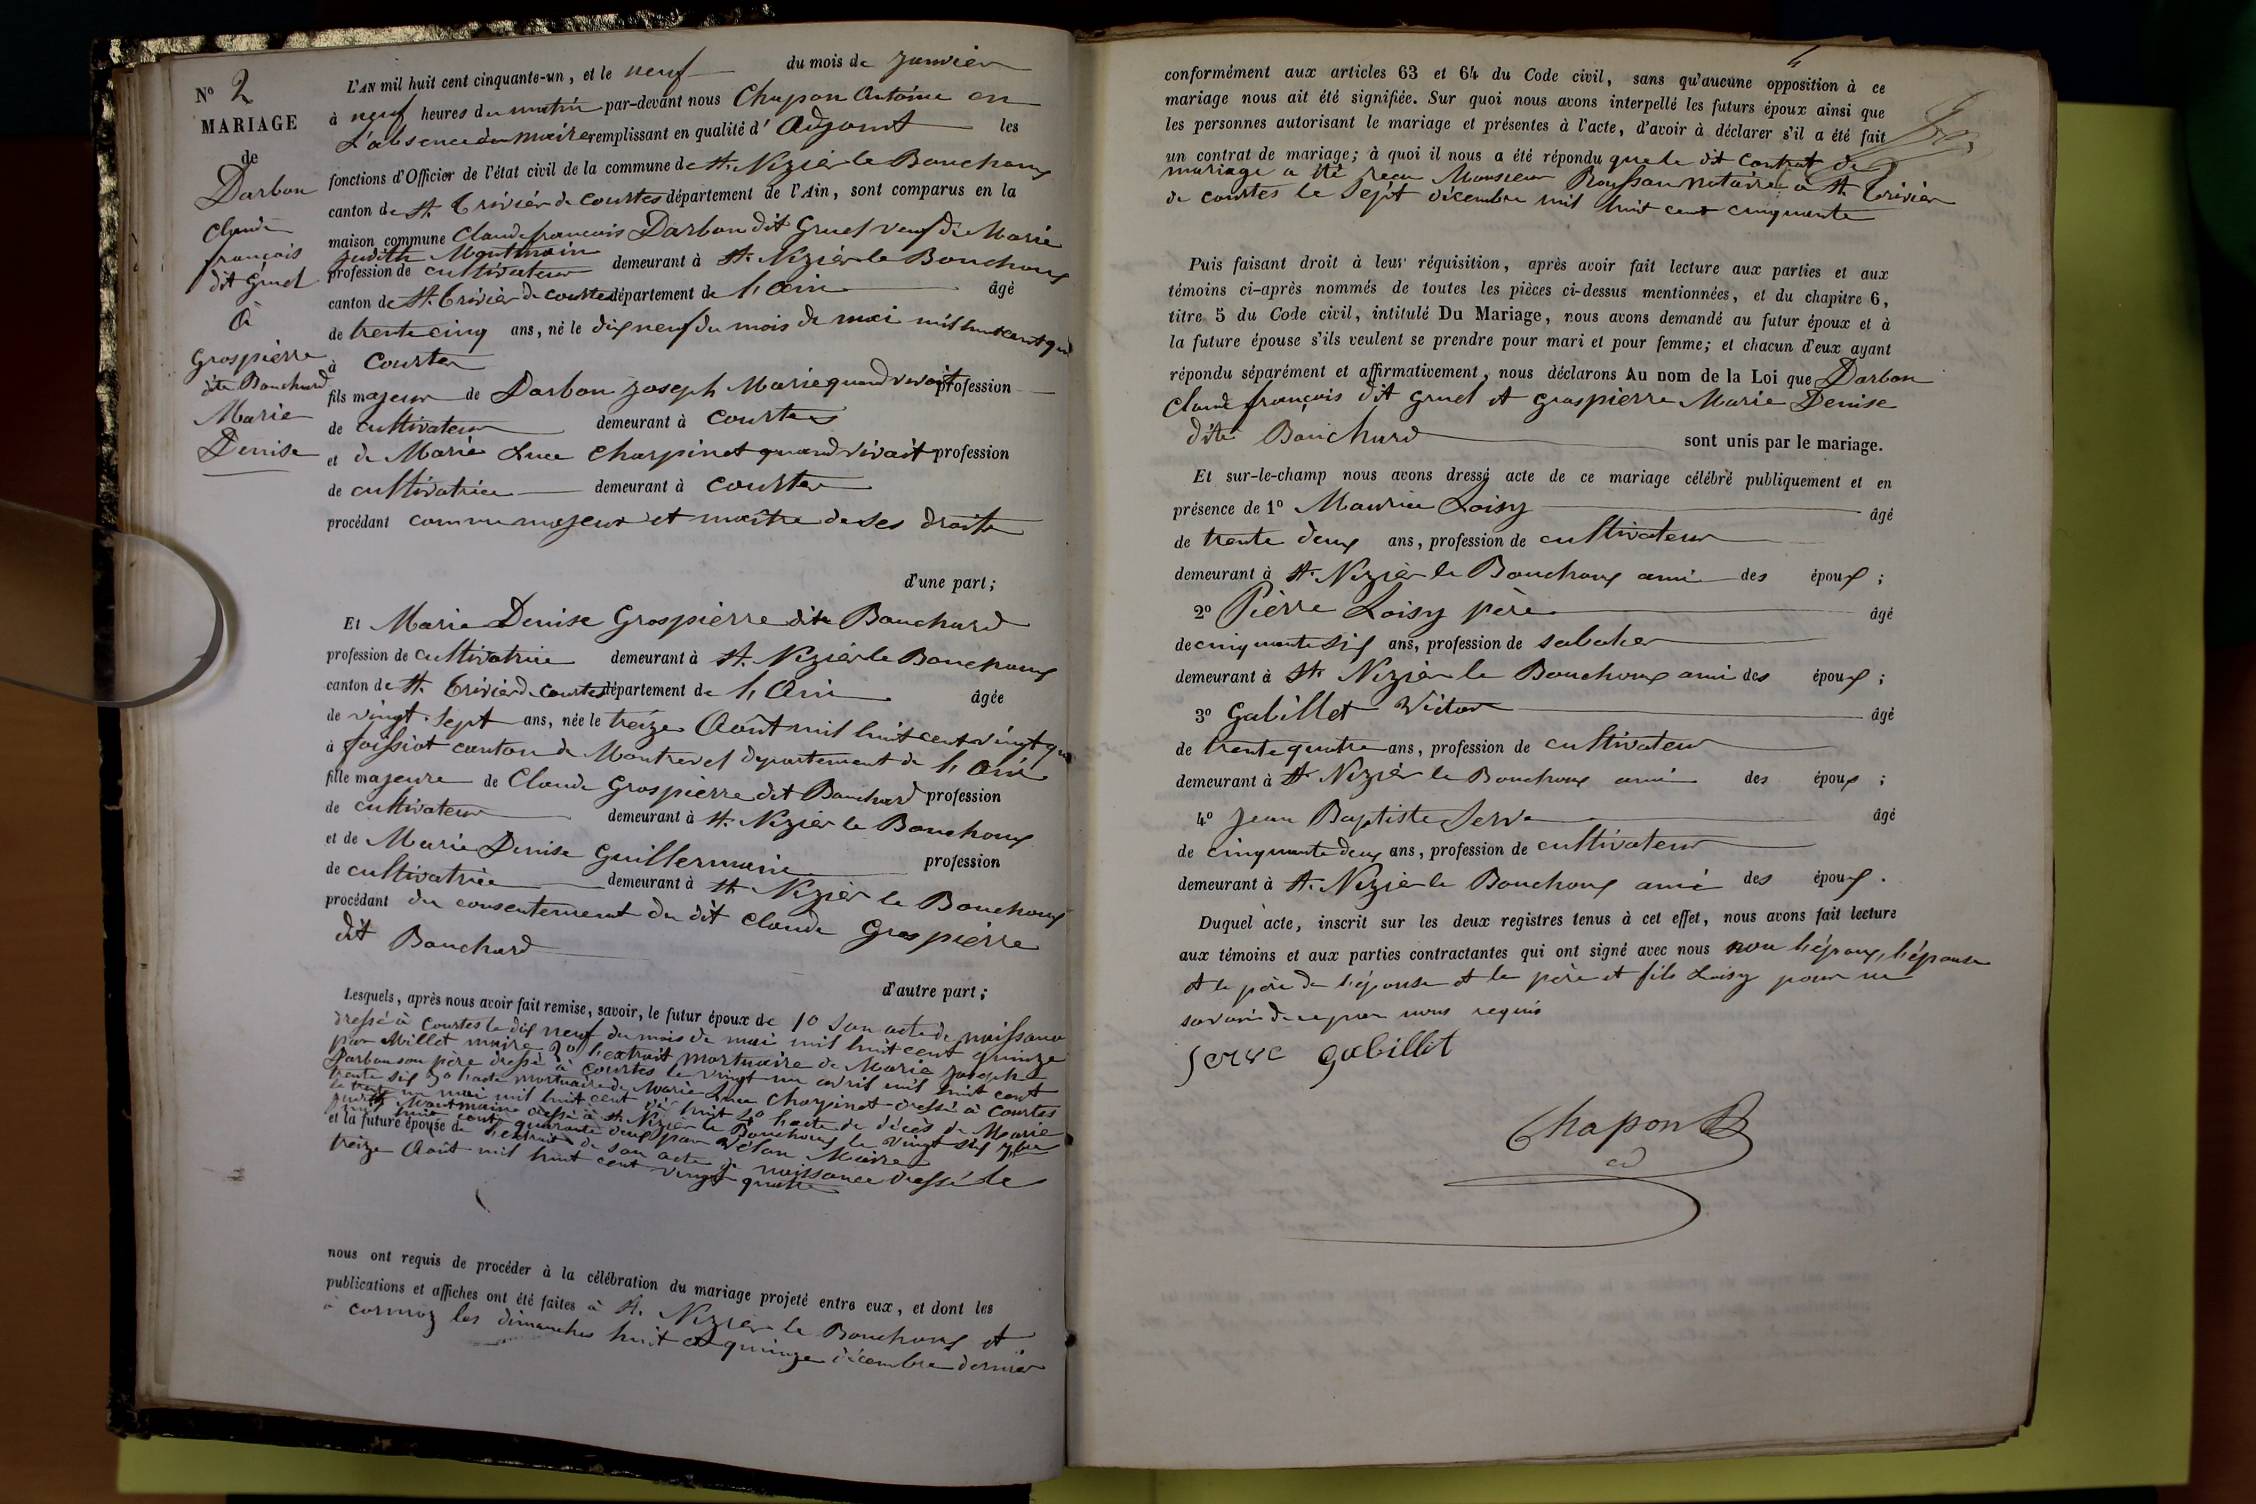 N° 2
MARIAGE
de
Darbon
Claude
françois
dit Gruel
à
Grospierre
dite Bouchard
Marie
Denise
L'AN mil huit cent cinquante-un, et le neuf du mois de Janvier
à neuf heures du matin par-devant nous Chapon Antoine en
L'absence du maire remplissant en qualité d'Adjoint les
fonctions d'Officier de l'état civil de la commune de St. Nizier le Bouchoux
canton de St. Trivier de Courtes département de l'Ain, sont comparus en la
maison commune Claude francois Darbon dit Gruel veuf de Marie
Judith Montmain
profession de cultivateur demeurant à St. Nizier le Bouchoux
canton de St. Trivier de Courtes département de l'Ain âgé
de trente cinq ans, né le dix neuf du mois de mai mil huit cent
à Courtes
fils majeur de Darbon Joseph Marie quand vivait profession
de cultivateur demeurant à Courtes
et de Marie Luce Charpinet quand vivait profession
de cultivatrice demeurant à Courtes
procédant comme majeur et maître de ses droits
d'une part;
Et Marie Denise Grospierre dite Bouchard
profession de cultivatrice demeurant à St. Nizier le Bouchoux
canton de St. Trivier de Courtes département de l'Ain âgée
de vingt-sept ans, née le treize Août mil huit cent vingt
à foissiat canton de Montrevel departement de l'Ain
fille majeure de Claude Grospierre dit Bouchard profession
de cultivateur demeurant à St. Nizier le Bouchoux
et de Marie Denise Guillermin profession
de cultivatrice demeurant à St Nizier le Bouchoux
procédant du consentement du dit Claude Grospierre
dit Bouchard
d'autre part;
Lesquels, après nous avoir fait remise, savoir, le futur époux de 1° son acte de naissance
dressé à Courtes le dix neuf du mois de mai mil huit cent quinze
par Millet maire 2° l'extrait mortuaire de Marie Joseph
Darbon son père dressé à Courtes le vingt un avril mil huit cent
trente six 3° l'acte mortuaire de Marie Luce Charpinet dressé à Courtes
le trente un mai mil huit cent dix huit 4° l'acte de décès de Marie
Judith Montmain dressé à St. Nizier le Bouchoux le vingt six
mil huit cent quarante deux par Vélon Maire
et la future épouse de l'extrait de son acte de naissance dressé le
treize Août mil huit cent vingt quatre
nous ont requis de procéder à la célébration du mariage projeté entre eux, et dont les
publications et affiches ont été faites à St. Nizier le Bouchoux et
à cormoz les dimanches huit et quinze décembre dernier
conformément aux articles 63 et 64 du Code civil, sans qu'aucune opposition à ce
mariage nous ait été signifiée. Sur quoi nous avons interpellé les futurs époux ainsi que
les personnes autorisant le mariage et présentes à l'acte, d'avoir à déclarer s'il a été fait
un contrat de mariage; à quoi il nous a été répondu que le dit contrat de
mariage a été reçu Monsieur Roussan notaire à St. Trivier
de Courtes le Sept décembre mil huit cent cinquante
Puis faisant droit à leur réquisition, après avoir fait lecture aux parties et aux
témoins ci-après nommés de toutes les pièces ci-dessus mentionnées, et du chapitre 6,
titre 5 du Code civil, intitulé Du Mariage, nous avons demandé au futur époux et à
la future épouse s'ils veulent se prendre pour mari et pour femme; et chacun d'eux ayant
répondu séparément et affirmativement, nous déclarons Au nom de la Loi que Darbon
Claude françois dit Gruel et Grospierre Marie Denise
dite Bouchard sont unis par le mariage.
Et sur-le-champ nous avons dressé acte de ce mariage célébré publiquement et en
présence de 1° Maurice Loisy âgé
de trente deux ans, profession de cultivateur
demeurant à St. Nizier le Bouchoux ami des époux;
2° Pierre Loisy père âgé
de cinquante six ans, profession de sabotier
demeurant à St. Nizier le Bouchoux ami des époux;
3° Gabillet Victor âgé
de trente quatre ans, profession de cultivateur
demeurant à St Nizier le Bouchoux ami des époux;
4° Jean Baptiste Serve âgé
de cinquante deux ans, profession de cultivateur
demeurant à St. Nizier le Bouchoux ami des époux.
Duquel acte, inscrit sur les deux registres tenus à cet effet, nous avons fait lecture
aux témoins et aux parties contractantes qui ont signé avec nous non l'époux, l'épouse
et le père de l'épouse et le père et fils Loisy pour ne
savoir de ce par nous requis
Serve Gabillet
Chapon
ad